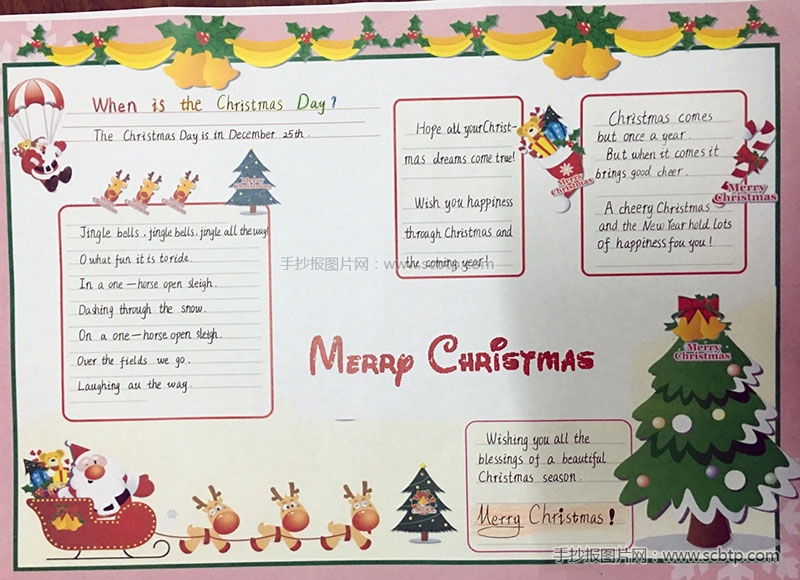 When is the Christmas Day?
The Christmas Day is in December 25th.
Merry Christmas
Jingle bells, jingle bells, jingle all the way!
O what fun it is to ride.
In a one—horse open sleigh.
Dashing through the snow.
On a one—horse open sleigh.
Over the fields we go.
Laughing au the way.
Hope all your Christ-
mas dreams come true!
Wish you happiness
through Christmas and
the coming year!
Merry Christmas
Christmas comes
but once a year.
But when it comes it
brings good cheer.
A cheery Christmas
and the New Year hold lots
of happiness fou you!
Merry Christmas
手抄报图片网：www.scbtp.com
MERRY CHRISTMAS
Merry Christmas
Wishing you all the
blessings of a beautiful
Christmas season.
Merry Christmas!
手抄报图片网：www.scbtp.com